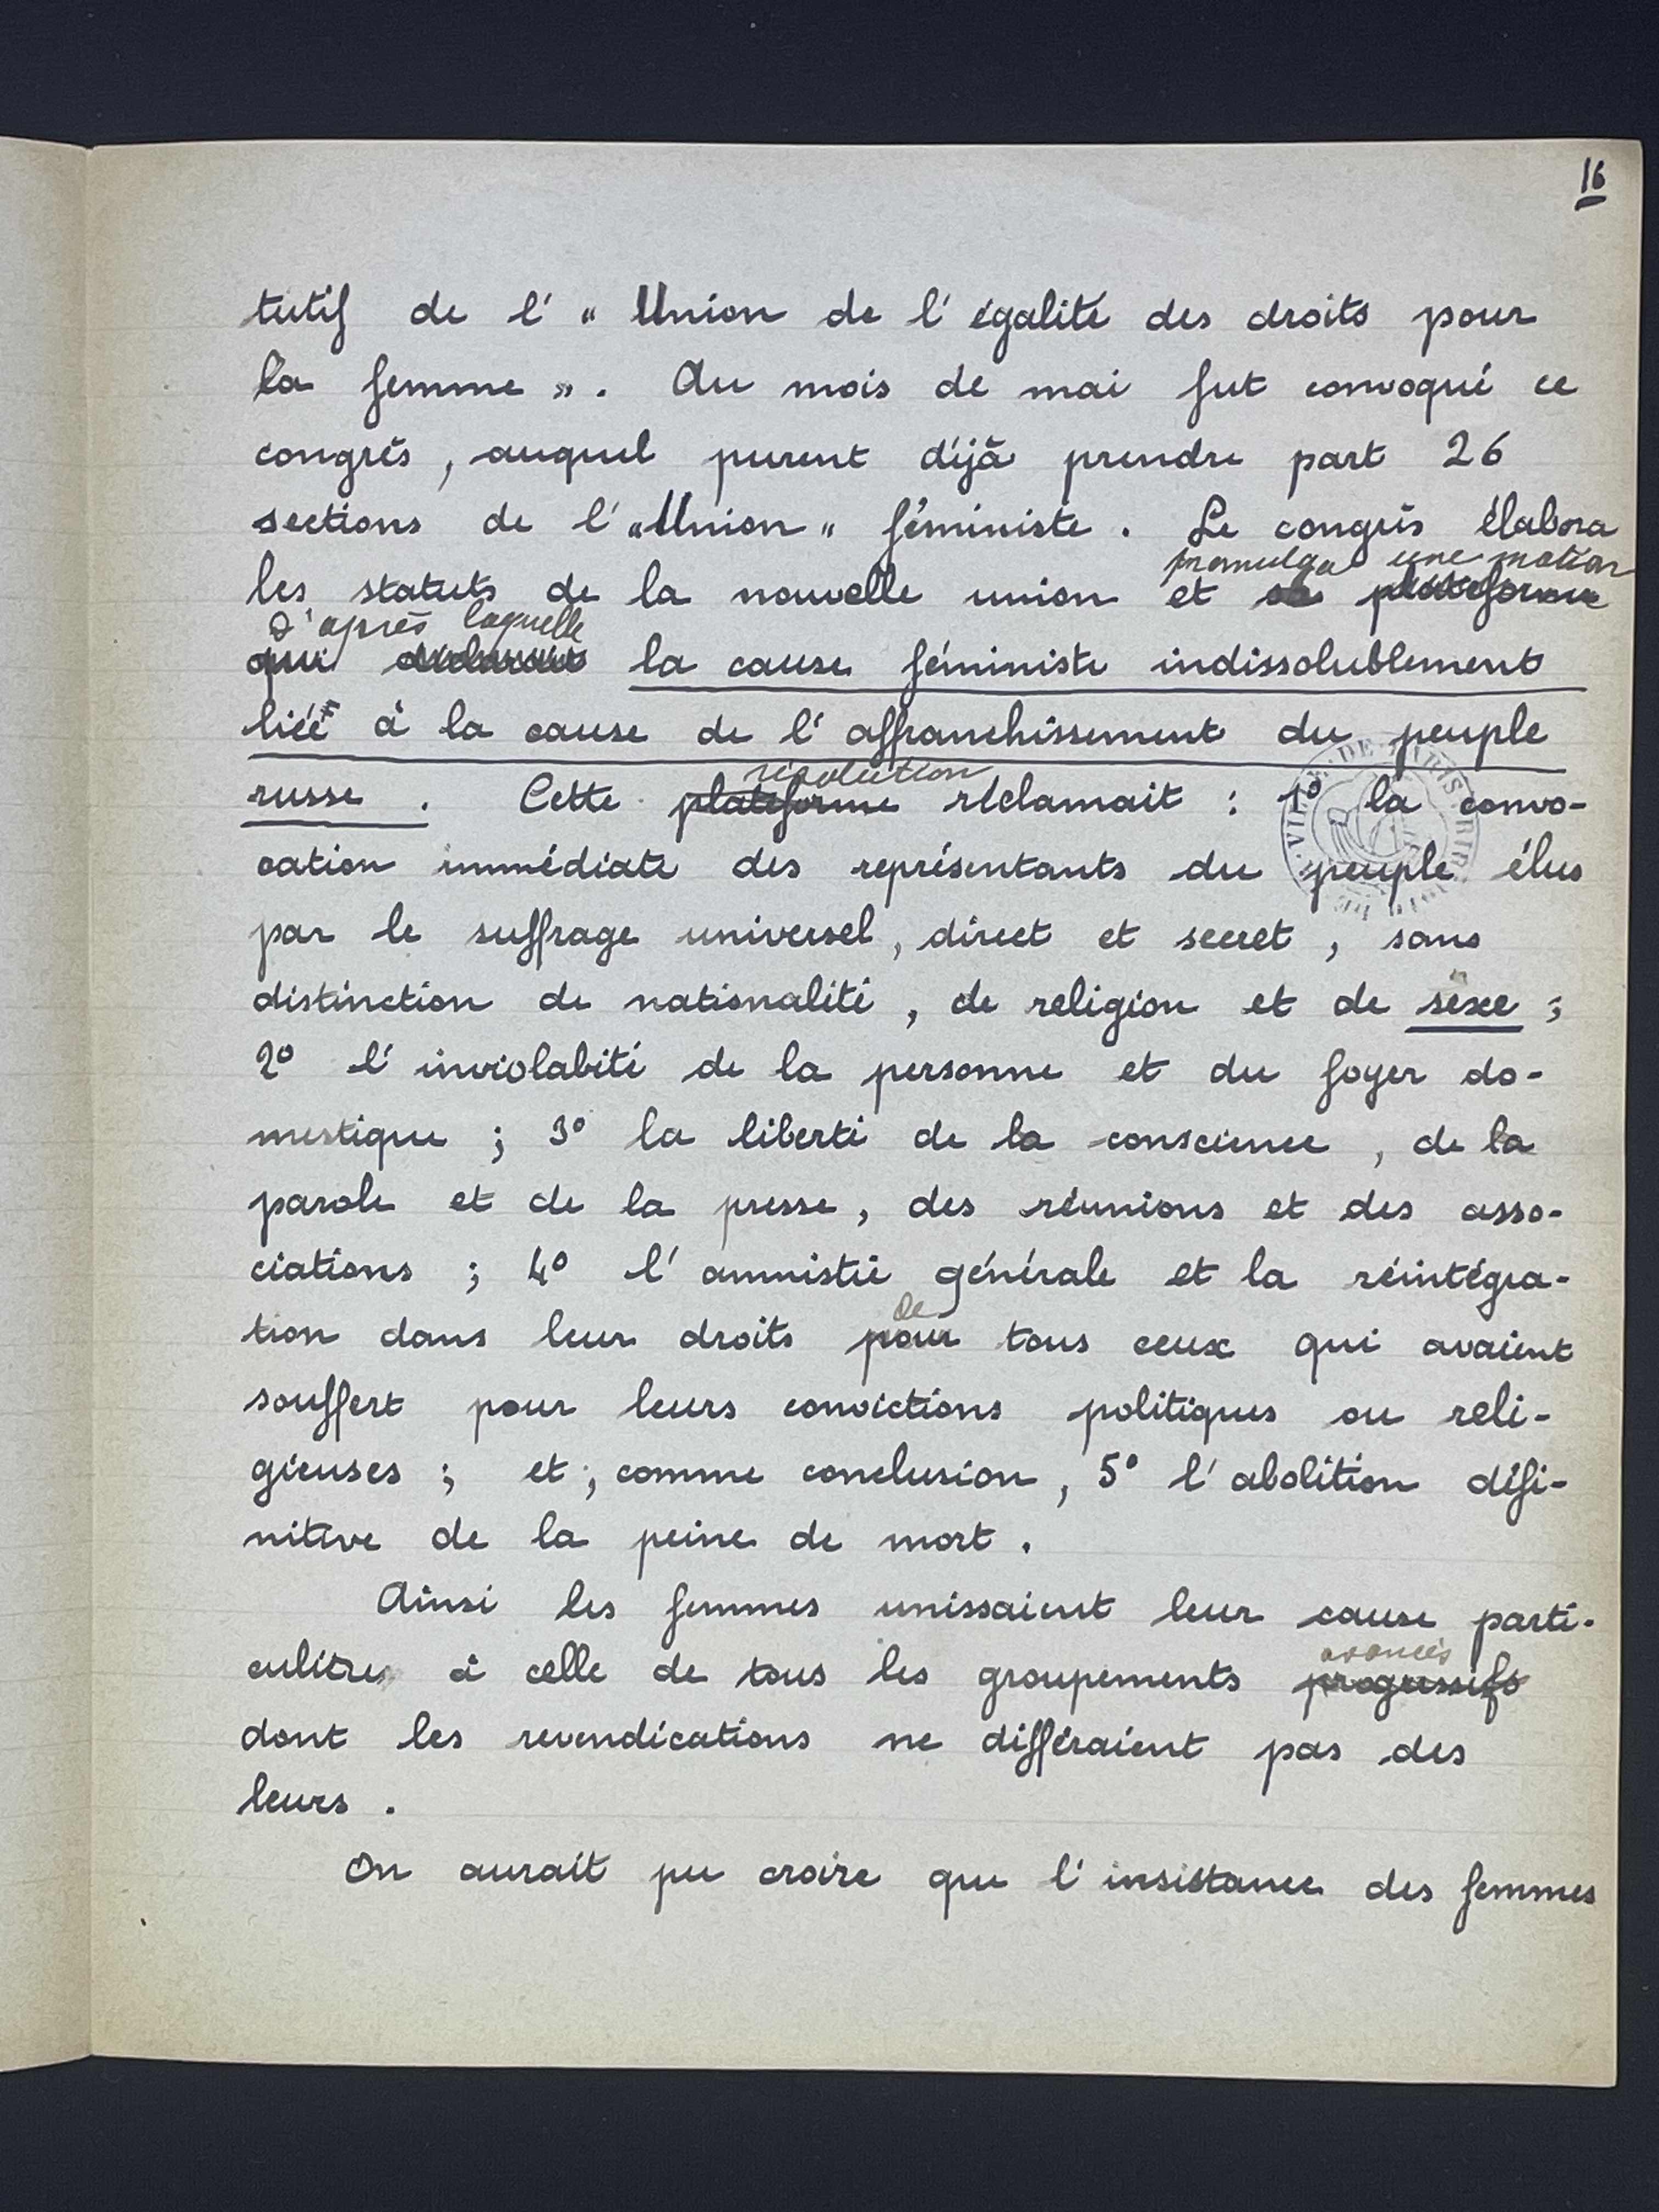 16
tutif de l' " Union de l'égalité des droits pour
la femme ». Au mois de mai fut convoqué ce
congrès, auquel purent déjà prendre part 26
sections de l' "Union" féministe. Le congrès élabora
promulga une motion
les statuts de la nouvelle union et sa plateforme
d'après laquelle
qui déclarait la cause féministe indissolublement
liée à la cause de l'affranchissement du peuple
résolution
russe. Cette plateforme réclamait : 1° la convo-
cation immédiate des représentants du peuple élus
par le suffrage universel, direct et secret, sans
distinction de nationalité, de religion et de sexe ;
2° l'inviolabité de la personne et du foyer do-
mestique ; 3° la liberté de la conscience, de la
parole et de la presse, des réunions et des asso-
ciations ; 4° l'amnistie générale et la réintégra-
de
tion dans leur droits pour tous ceux qui avaient
souffert pour leurs convictions politiques ou reli-
gieuses ; et, comme conclusion, 5° l'abolition défi-
nitive de la peine de mort.
Ainsi les femmes unissaient leur cause parti-
avancés
culière à celle de tous les groupements progressifs
dont les revendications ne différaient pas des
leurs.
On aurait pu croire que l'insistance des femmes